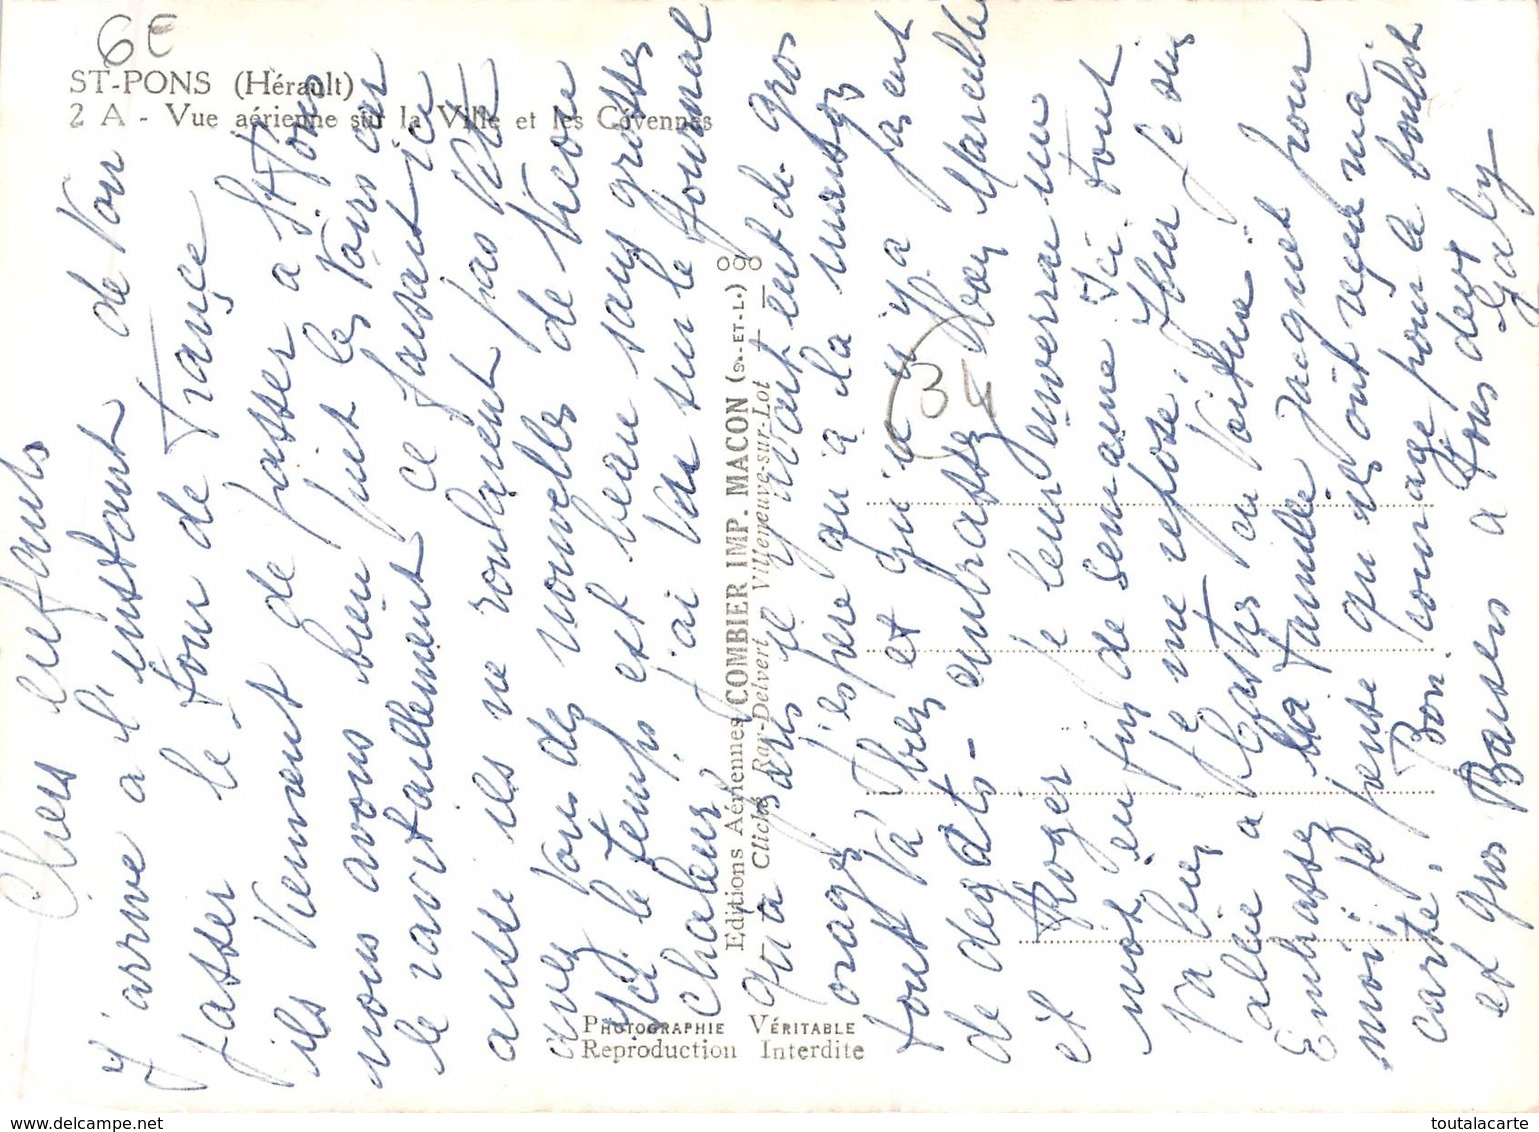 6E
ST-PONS (Hérault)
2 A - Vue aérienne sur la Ville et les Cévennes
Editions Aériennes COMBIER IMP. MACON (S.-ET-L.)
Cliché Ray-Delvert Villeneuve-sur-Lot
PHOTOGRAPHIE VÉRITABLE
Reproduction Interdite
34
Chers Enfants
J'arrive à l'instant de voir
passer le tour de France
ils viennent de passer a St Pons
nous avons bien juit les voirs car
le ravitaillement ce faisait ici
aussi ils ne roulaient pas vite
avez vous des nouvelles de
Ici le temps est beau sans grosses
chaleurs j'ai vu sur le Journal
qu'a il y avait eut de gros
orages j'espere qu'a la
tout va bien et qu'il n'y a pas eut
de degats - embrassez bien Marcelle
et Roger je leur enverrai un
mot en fin de semaine Ici tout
va bien je me repose, hier je suis
allée a Castres en voiture.
Embrassez la Famille Jacquet pour
moi, je pense qu'ils ont reçu ma
carte. Bon courage pour le boulot
et gros Baisers a tous deux
Gaby
toutalacarte